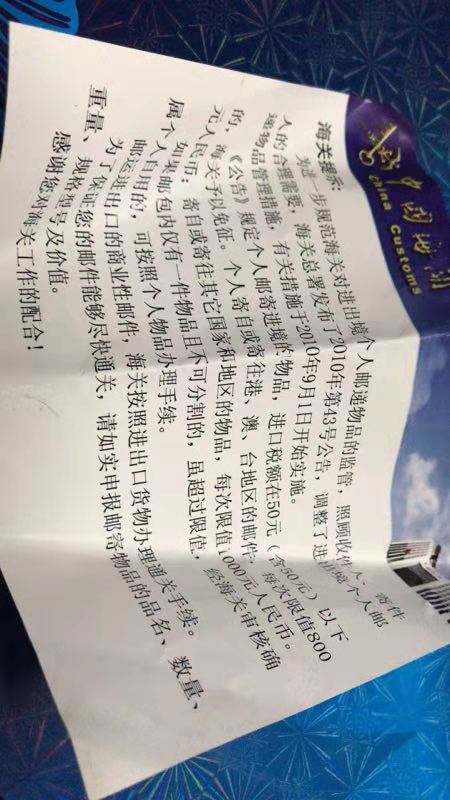 中国海关
China Customs
海关提示:
为进一步规范海关对进出境个人邮递物品的监管,照顾收件人、寄件
人的合理需要,海关总署发布了2010年第43号公告,调整了进出境个人邮
递物品管理措施,有关措施于2010年9月1日开始实施。
《公告》规定个人邮寄进境物品,进口税额在50元(含50元)以下
的,海关予以免征。个人寄自或寄往港、澳、台地区的邮件,每次限值800
元人民币;寄自或寄往其它国家和地区的物品,每次限值1000元人民币。
如果邮包内仅有一件物品且不可分割的,虽超过限值,经海关审核确
属个人自用的,可按照个人物品办理手续。
邮运进出口的商业性邮件,海关按照进出口货物办理通关手续。
为了保证您的邮件能够尽快通关,请如实申报邮寄物品的品名、数量、
重量、规格型号及价值。
感谢您对海关工作的配合!